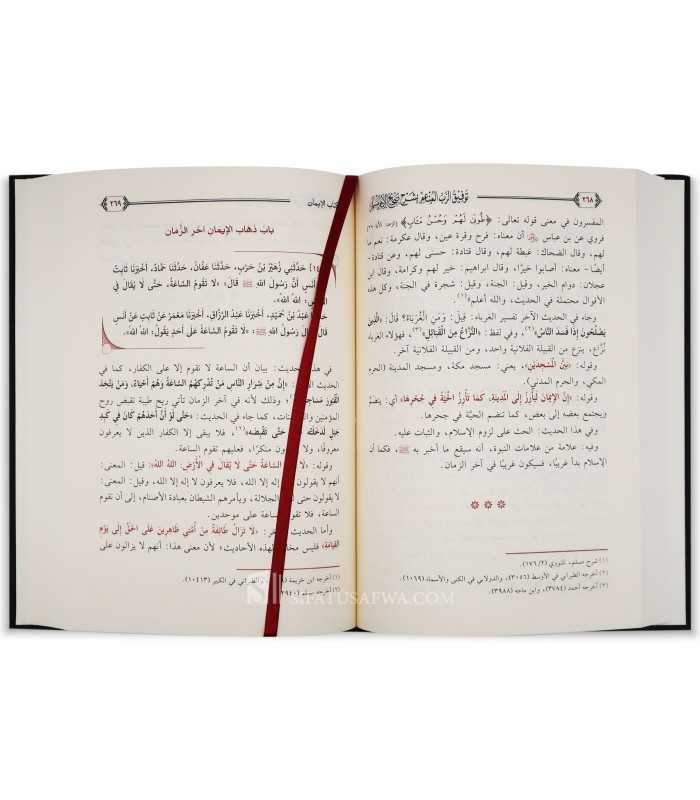 ٢٦٨
توفيق الرب المنعم بشرح صحيح الإمام مسلم
المفسرون في معنى قوله تعالى: ﴿طُوبَىٰ لَهُمْ وَحُسْنُ مَـَٔابٍ﴾
فروي عن بن عباس أن معناه: فرح وقرة عين، وقال عكرمة: نعم ما
لهم، وقال الضحاك: غبطة لهم، وقال قتادة: حسنى لهم، وعن قتادة،
أيضًا - معناه: أصابوا خيرًا، وقال ابراهيم: خير لهم وكرامة، وقال ابن
عجلان: دوام الخير، وقيل: الجنة، وقيل: شجرة في الجنة، وكل هذه
الأقوال محتملة في الحديث، والله أعلم»(١).
وجاء في الحديث الآخر تفسير الغرباء: قِيلَ: وَمَنِ الْغُرَبَاءُ؟ قَالَ: «الَّذِينَ
يَصْلُحُونَ إِذَا فَسَدَ النَّاسُ»(٢)، وفي لفظ: «النُّزَّاعُ مِنَ الْقَبَائِلِ»(٣)، فهؤلاء الغرباء
نُزَّاع، ينزع من القبيلة الفلانية واحد، ومن القبيلة الفلانية آخر.
وقوله: «بَيْنَ الْمَسْجِدَيْنِ»، يعني: مسجد مكة، ومسجد المدينة (الحرم
المكي، والحرم المدني).
وقوله: «إِنَّ الْإِيمَانَ لَيَأْرِزُ إِلَى الْمَدِينَةِ، كَمَا تَأْرِزُ الْحَيَّةُ فِي جُحْرِهَا» أي: ينضم
ويجتمع بعضه إلى بعض، كما تنضم الحيَّة في جحرها.
وفي هذا الحديث: الحث على لزوم الإسلام، والثبات عليه.
وفيه: علامة من علامات النبوة، أنه سيقع ما أخبر به ﷺ، فكما أن
الإسلام بدأ غريبًا، فسيكون غريبًا في آخر الزمان.
(١) شرح مسلم، للنووي (١٧٦/٢).
(٢) أخرجه الطبراني في الأوسط (٣٠٥٦)، والدولابي في الكنى والأسماء (١٠٦٩).
(٣) أخرجه أحمد (٣٧٨٤)، وابن ماجه (٣٩٨٨).
كتاب الإيمان
٢٦٩
بَابُ ذَهَابِ الْإِيمَانِ آخِرَ الزَّمَانِ
حَدَّثَنِي زُهَيْرُ بْنُ حَرْبٍ، حَدَّثَنَا عَفَّانُ، حَدَّثَنَا حَمَّادٌ، أَخْبَرَنَا ثَابِتٌ
أَنَسٍ أَنَّ رَسُولَ اللهِ ﷺ قَالَ: «لَا تَقُومُ السَّاعَةُ، حَتَّى لَا يُقَالَ فِي
اللهُ اللهُ».
عَبْدُ بْنُ حُمَيْدٍ، أَخْبَرَنَا عَبْدُ الرَّزَّاقِ، أَخْبَرَنَا مَعْمَرٌ عَنْ ثَابِتٍ عَنْ أَنَسٍ
قَالَ رَسُولُ اللهِ ﷺ: «لَا تَقُومُ السَّاعَةُ عَلَى أَحَدٍ يَقُولُ: اللهُ اللهُ».
في هذا الحديث: بيان أن الساعة لا تقوم إلا على الكفار، كما في
الحديث «إِنَّ مِنْ شِرَارِ النَّاسِ مَنْ تُدْرِكُهُمُ السَّاعَةُ وَهُمْ أَحْيَاءٌ، وَمَنْ يَتَّخِذُ
الْقُبُورَ مَسَاجِدَ»(١)، وذلك لأنه في آخر الزمان تأتي ريح طيبة تقبض روح
المؤمنين كما جاء في الحديث: «حَتَّى لَوْ أَنَّ أَحَدَهُمْ كَانَ فِي كَبِدِ
جَبَلٍ لَدَخَلَتْ حَتَّى تَقْبِضَهُ»(٢)، فلا يبقى إلا الكفار الذين لا يعرفون
معروفًا، ولا منكرًا، فعليهم تقوم الساعة.
وقوله: «لَا السَّاعَةُ حَتَّى لَا يُقَالَ فِي الْأَرْضِ: اللهُ اللهُ» قيل: المعنى:
أنهم لا يقولون إله إلا الله، فلا يعرفون لا إله إلا الله، وقيل: المعنى:
لا يقولون حتى الجلالة، ويأمرهم الشيطان بعبادة الأصنام، إلى أن تقوم
الساعة، فلا تقوم الساعة على موحدين.
وأما الحديث «لَا تَزَالُ طَائِفَةٌ مِنْ أُمَّتِي ظَاهِرِينَ عَلَى الْحَقِّ إِلَى يَوْمِ
الْقِيَامَةِ» فليس لهذه الأحاديث؛ لأن معنى هذا: أنهم لا يزالون على
(١) أخرجه ابن خزيمة الطبراني في الكبير (١٠٤١٣).
(٢) (٢٩٤٠).
SIFATUSAFWA.COM